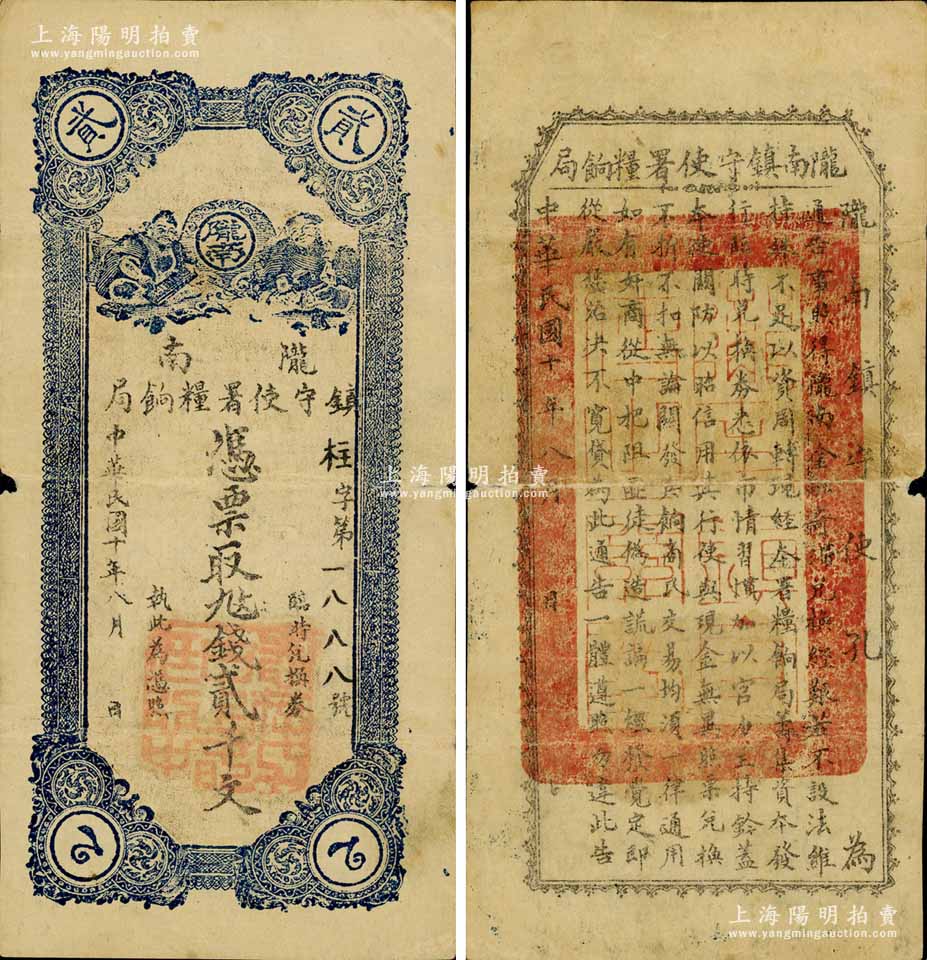 上海陽明拍賣
www.yangmingauction.com
貳
隴南
隴南
鎮守使署糧餉局
枉字第一八八八號
臨時兌換券
憑票取九錢貳十文
執此為憑照
中華民國十年八月 日
上海陽明拍賣
www.yangmingauction.com
上海陽明拍賣
www.yangmingauction.com
隴南鎮守使署糧餉局
隴南鎮守使孔 為
通告事照得隴南金融 兌換 艱 不設法維
持 不足以資周轉現經本署糧餉局籌集資本發
行臨時兌換券悉依市情習慣加以官力主持鈐蓋
本使關防以昭信用其行使與現金無異照票兌換
不折不扣無論關發兵餉商民交易均須一律通用
如有奸商從中把阻匪徒偽造謊論一經發覺定即
從嚴懲治決不寬貸為此通告一體遵照勿違此告
中華民國十年八月 日
上海陽明拍賣
www.yangmingauction.com